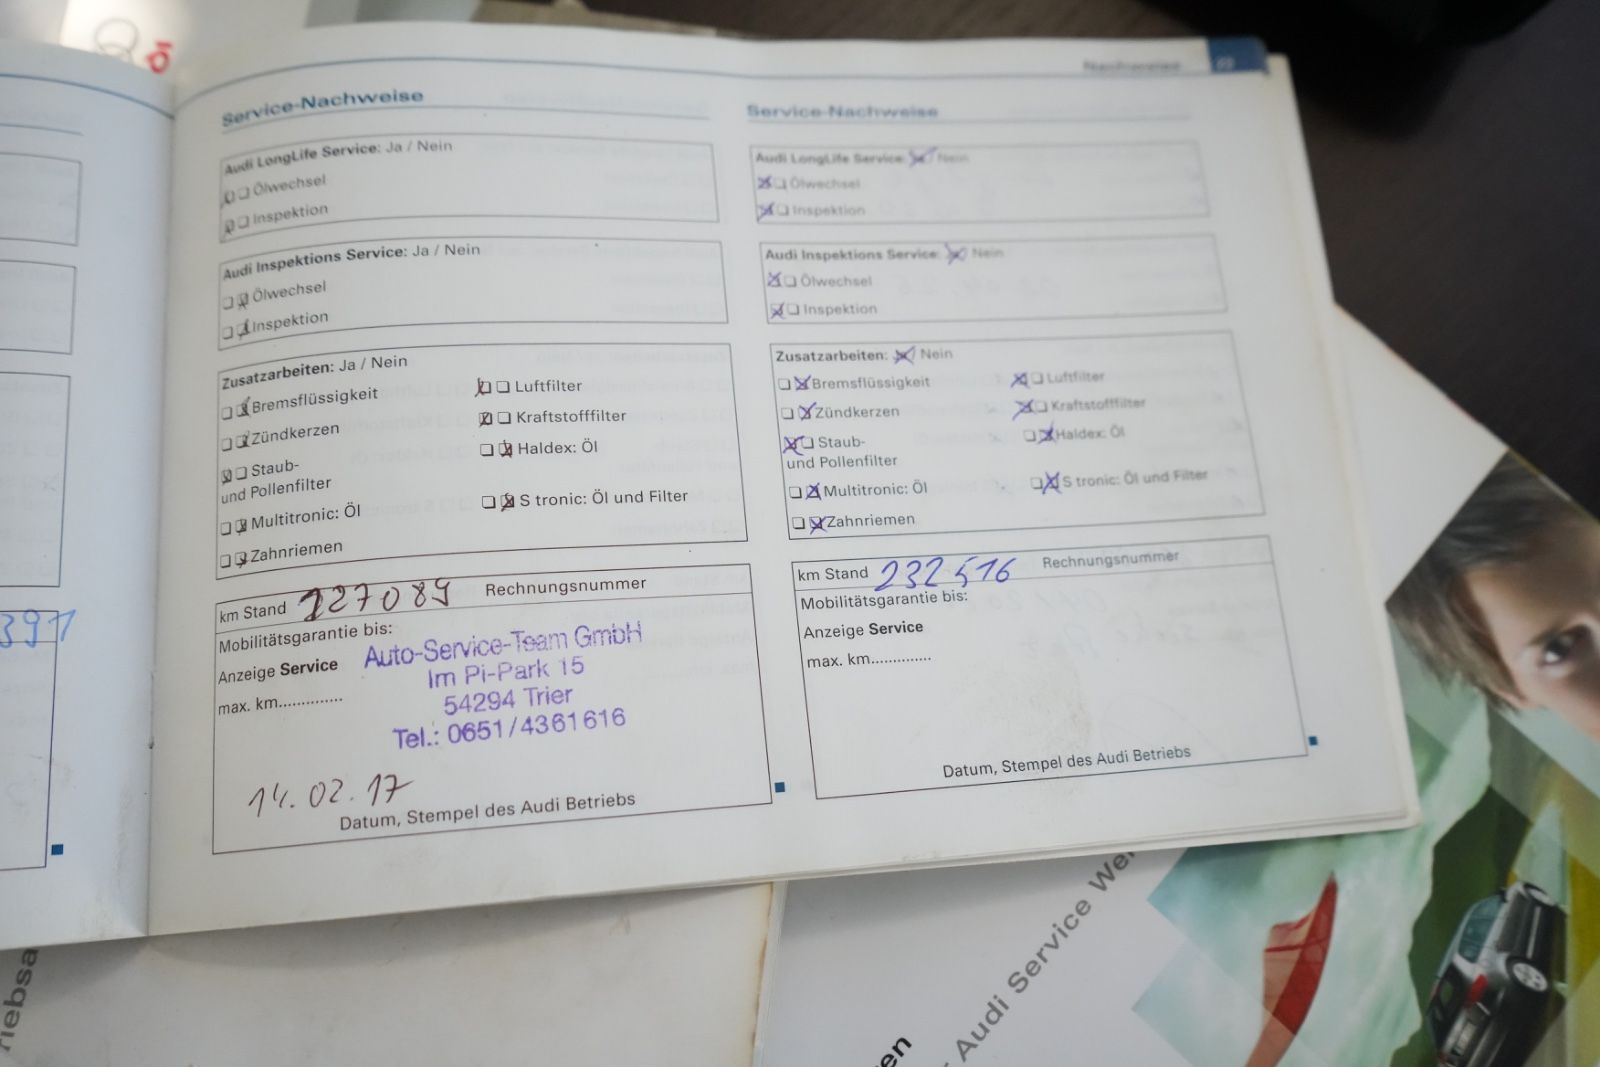 391
Service-Nachweise
Audi LongLife Service: Ja / Nein
Ölwechsel
Inspektion
Audi Inspektions Service: Ja / Nein
Ölwechsel
Inspektion
Zusatzarbeiten: Ja / Nein
Bremsflüssigkeit
Luftfilter
Zündkerzen
Kraftstofffilter
Staub-
und Pollenfilter
Haldex: Öl
Multitronic: Öl
S tronic: Öl und Filter
Zahnriemen
km Stand 227089 Rechnungsnummer
Mobilitätsgarantie bis:
Anzeige Service
max. km..............
Auto-Service-Team GmbH
Im Pi-Park 15
54294 Trier
Tel.: 0651/4361616
14.02.17
Datum, Stempel des Audi Betriebs
Service-Nachweise
Audi LongLife Service: Nein
Ölwechsel
Inspektion
Audi Inspektions Service: Nein
Ölwechsel
Inspektion
Zusatzarbeiten: Nein
Bremsflüssigkeit
Luftfilter
Zündkerzen
Kraftstofffilter
Staub-
und Pollenfilter
Haldex: Öl
Multitronic: Öl
S tronic: Öl und Filter
Zahnriemen
km Stand 232516 Rechnungsnummer
Mobilitätsgarantie bis:
Anzeige Service
max. km..............
Datum, Stempel des Audi Betriebs
Audi Service